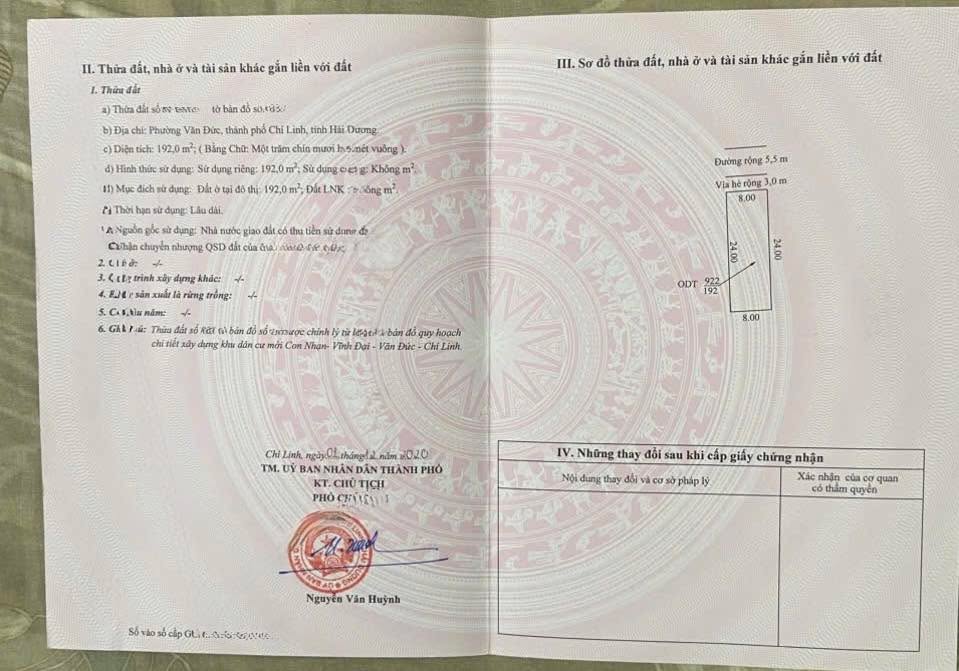 II. Thửa đất, nhà ở và tài sản khác gắn liền với đất
1. Thửa đất
a) Thửa đất số tờ bản đồ số
b) Địa chỉ: Phường Văn Đức, thành phố Chí Linh, tỉnh Hải Dương.
c) Diện tích: 192,0 m²; ( Bằng Chữ: Một trăm chín mươi mét vuông ).
d) Hình thức sử dụng: Sử dụng riêng: 192,0 m²; Sử dụng Không m².
Mục đích sử dụng: Đất ở tại đô thị: 192,0 m²; Đất LNK m².
Thời hạn sử dụng: Lâu dài.
Nguồn gốc sử dụng: Nhà nước giao đất có thu tiền sử dụng
chuyển nhượng QSD đất của
2. -/-
3. trình xây dựng khác: -/-
4. sản xuất là rừng trồng: -/-
5. năm: -/-
6. Thửa đất số bản đồ số được chỉnh lý từ bản đồ quy hoạch
chi tiết xây dựng khu dân cư mới Con Nhạn- Vĩnh Đại - Văn Đức - Chí Linh.
Chí Linh, ngày 01 tháng 12 năm 2020
TM. UỶ BAN NHÂN DÂN THÀNH PHỐ
KT. CHỦ TỊCH
PHÓ
Nguyễn Văn Huỳnh
Số vào sổ cấp
III. Sơ đồ thửa đất, nhà ở và tài sản khác gắn liền với đất
Đường rộng 5,5 m
Vỉa hè rộng 3,0 m
8.00
24.00
24.00
ODT 922
192
8.00
IV. Những thay đổi sau khi cấp giấy chứng nhận
Nội dung thay đổi và cơ sở pháp lý
Xác nhận của cơ quan
có thẩm quyền